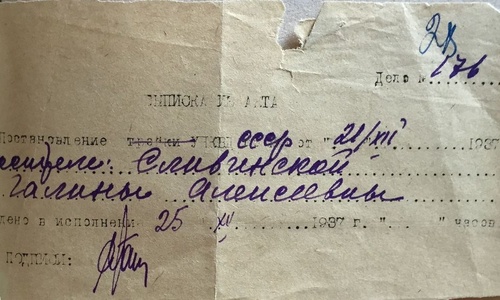 28
Дело № 176
ВЫПИСКА ИЗ АКТА
Постановление тройки УНКВД СССР от "21/XII 1937
Сливинской
Галины Алексеевны
дено в исполнение 25 XII 1937 г. " " часов
ПОДПИСЬ: